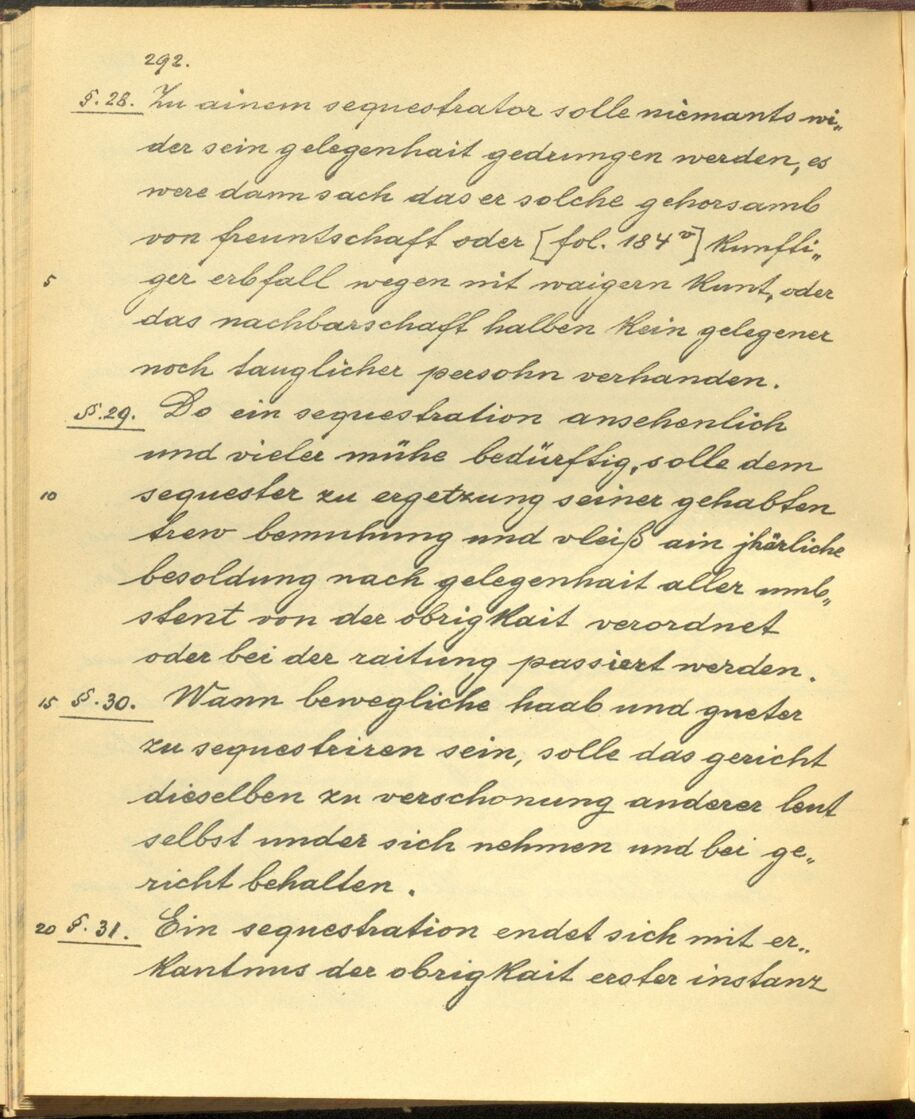 292.
§. 28. Zu ainem sequestrator solle niemants wi„
der sein gelegenhait gedrungen werden, es
were dann sach das er solche gehorsamb
von freuntschaft oder [fol. 184ᵛ] kunfti„
5 ger erbfall wegen nit waigern kunt, oder
das nachbarschaft halben kein gelegener
noch tauglicher persohn verhanden.
§.29. Do ein sequestration ansehenlich
und vieler mühe bedürftig, solle dem
10 sequester zu ergetzung seiner gehabten
trew bemuhung und vleiß ain jhärliche
besoldung nach gelegenhait aller umb„
stent von der obrigkait verordnet
oder bei der raitung passiert werden.
15 §.30. Wann bewegliche haab und gueter
zu sequestriren sein, solle das gericht
dieselben zu verschonung anderer leut
selbst under sich nehmen und bei ge„
richt behalten.
20 §. 31. Ein sequestration endet sich mit er„
kantnus der obrigkait erster instanz